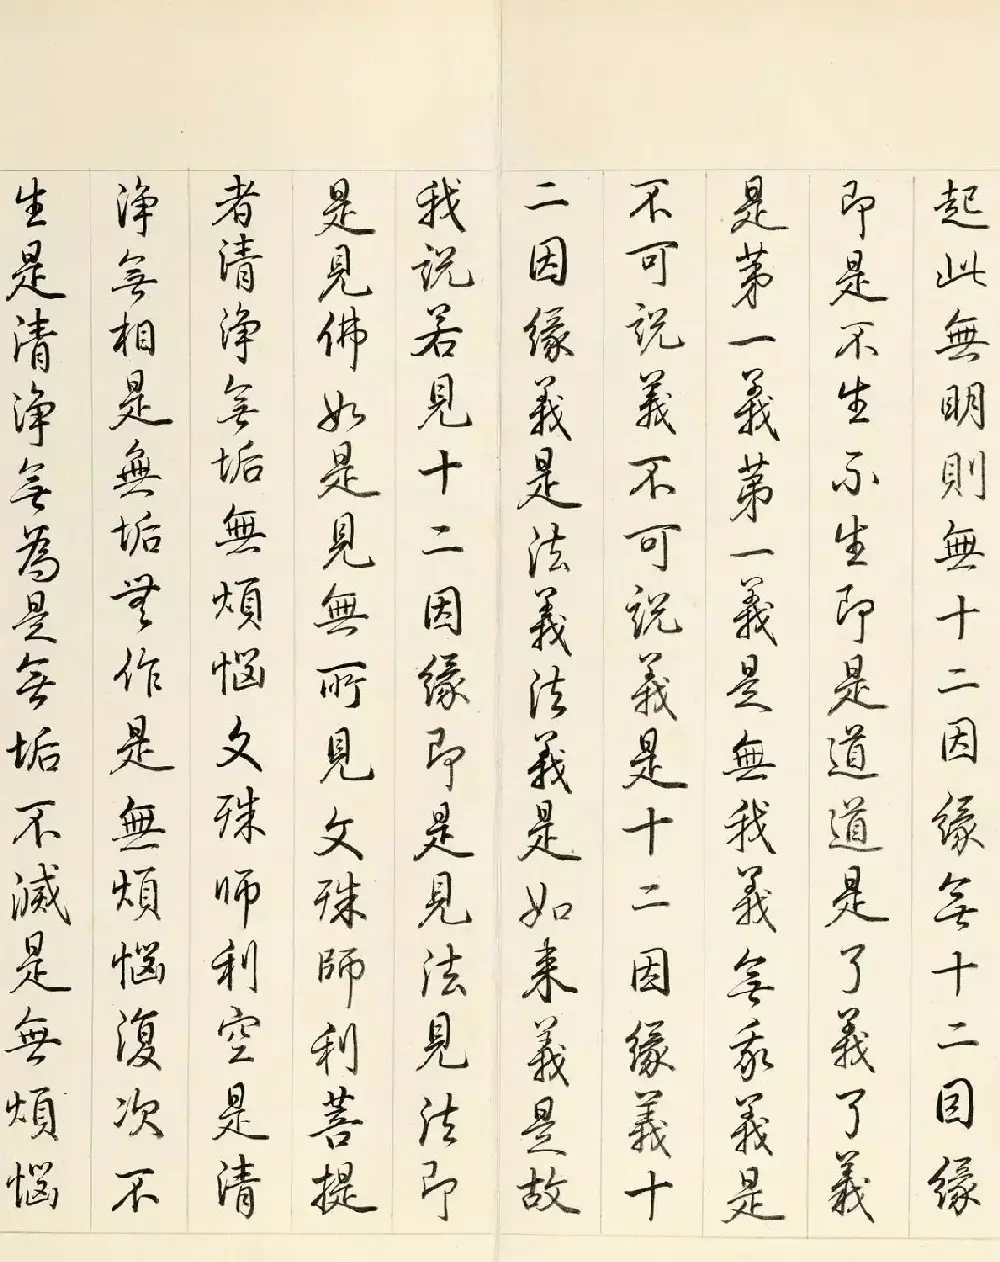 起此無明則無十二因緣無十二因緣
即是不生不生即是道道是了義了義
是第一義第一義是無我義無我義是
不可說義不可說義是十二因緣義十
二因緣義是法義法義是如来義是故
我說若見十二因緣即是見法見法即
是見佛如是見無所見文殊師利菩提
者清淨無垢無煩惱文殊師利空是清
淨無相是無垢無作是無煩惱復次不
生是清淨無為是無垢不滅是無煩惱